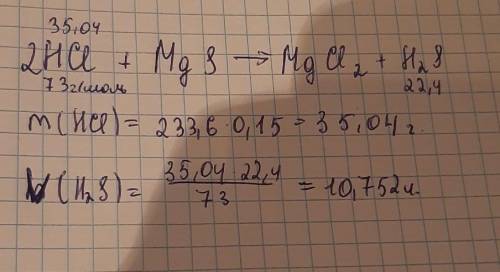 35,04
2HCl + MgS → MgCl₂ + H₂S
73г/моль 22,4
m(HCl) = 233,6 · 0,15 = 35,04 г.
V(H₂S) = 35,04 · 22,4 / 73 = 10,752 л.